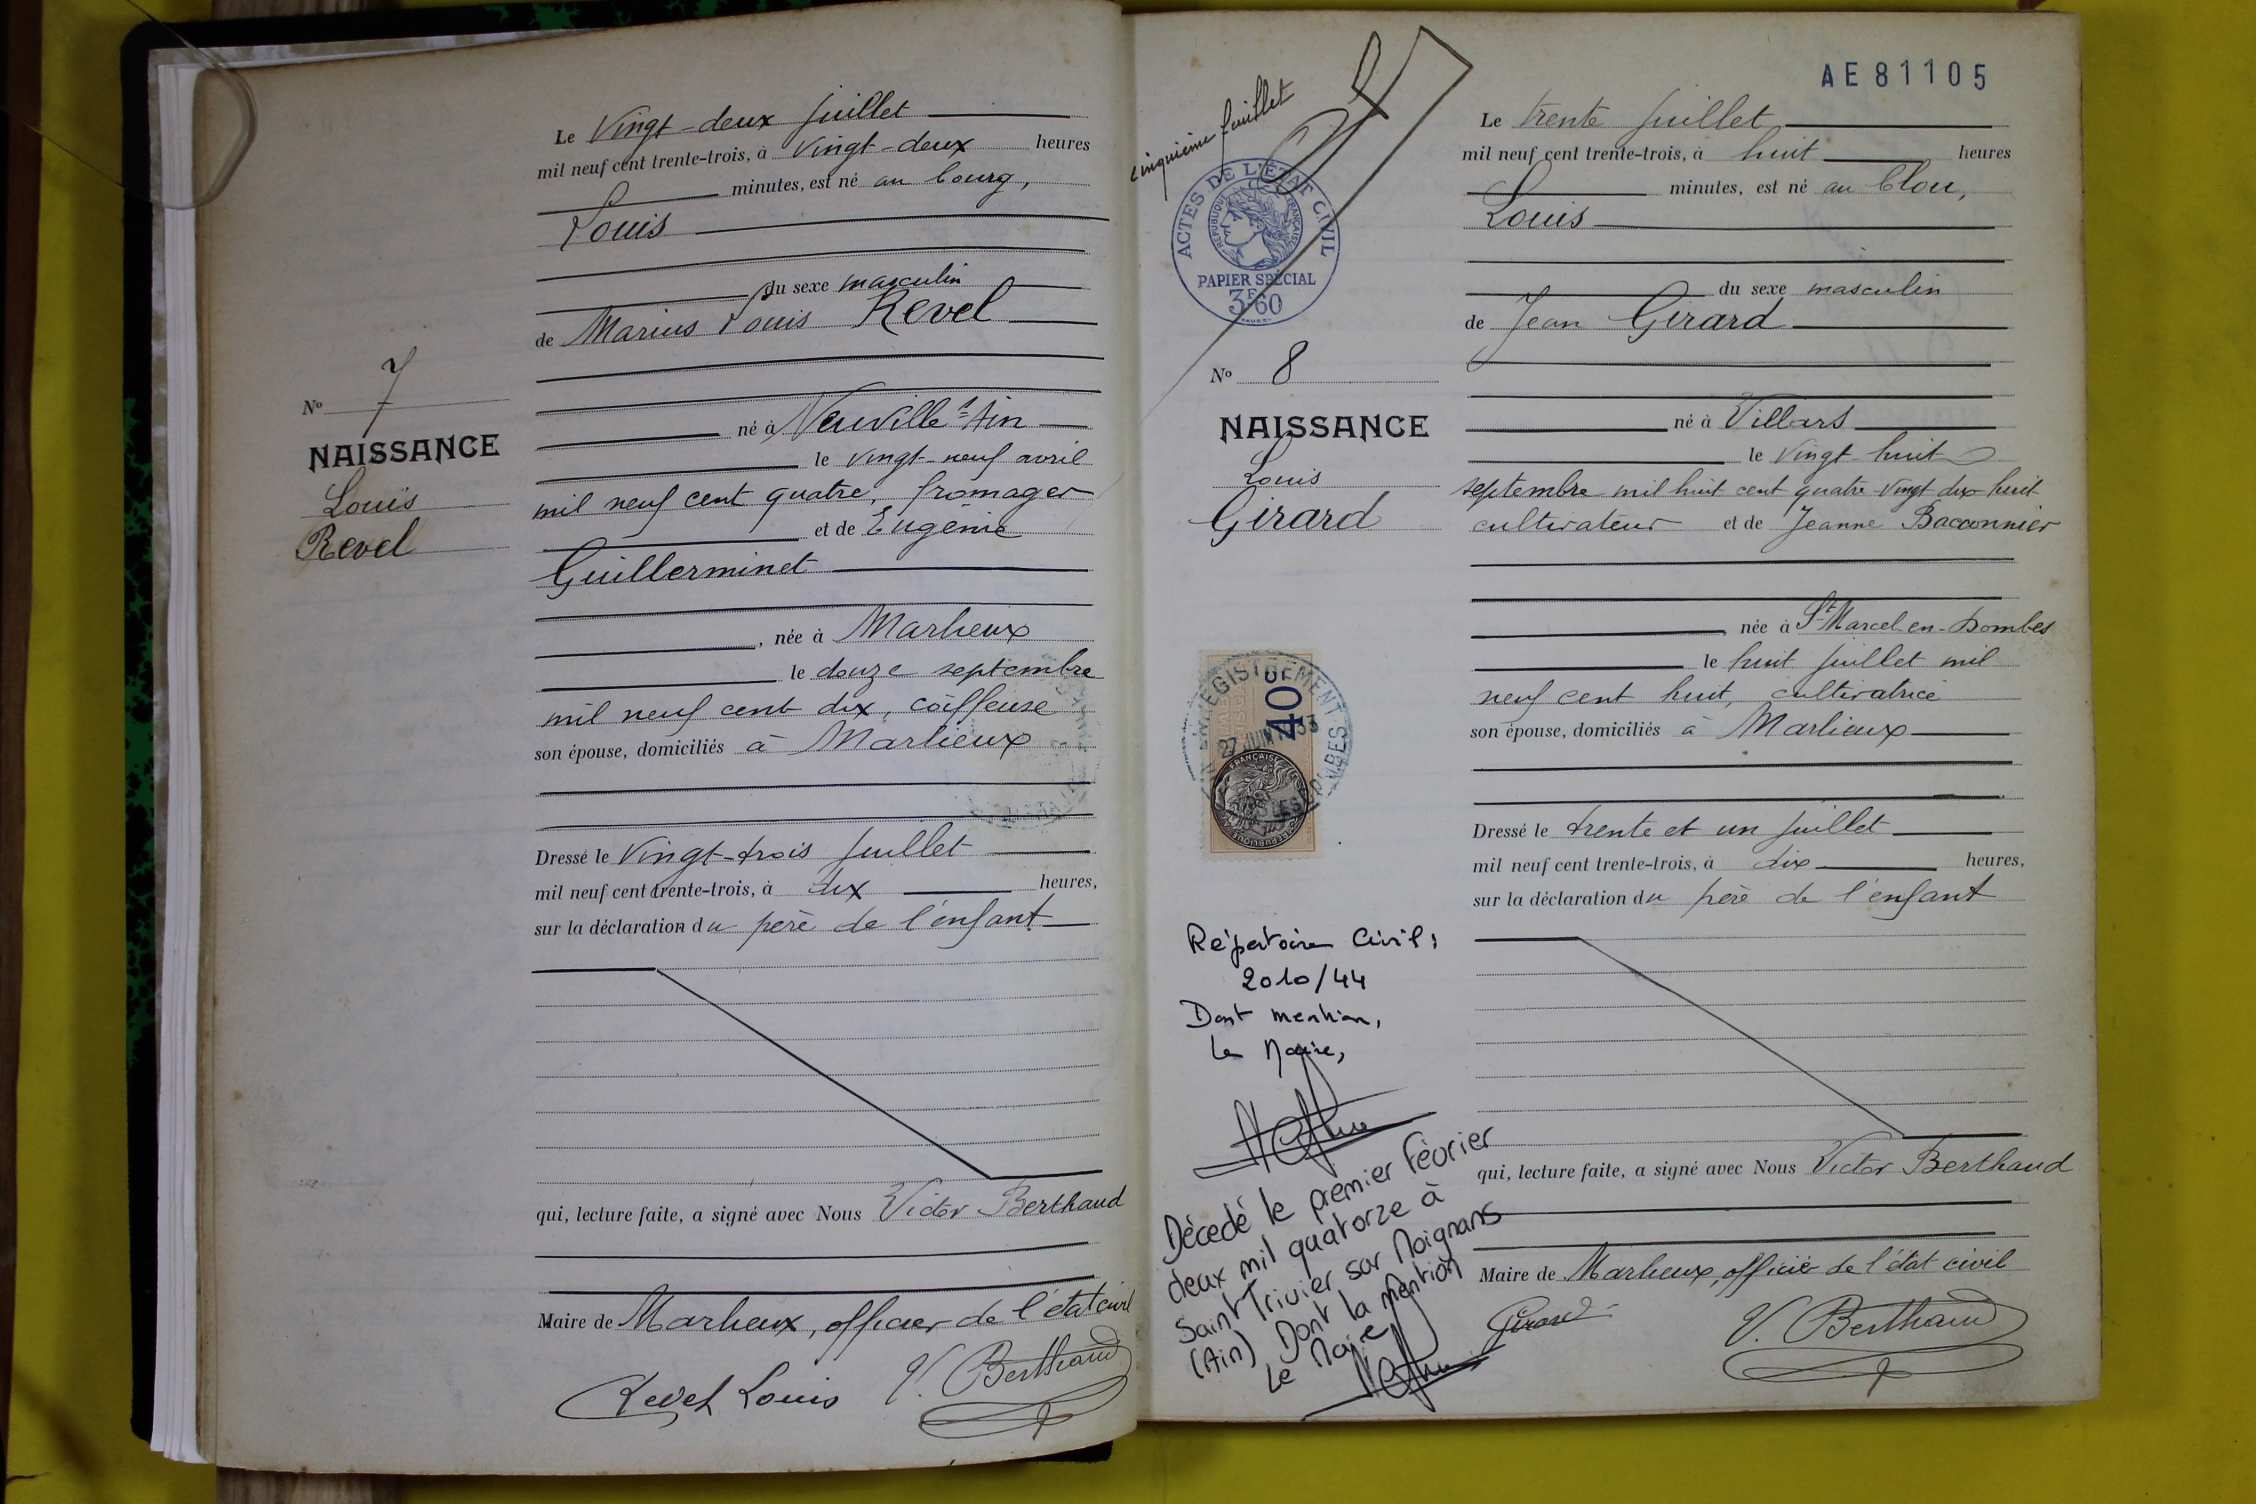 Le Vingt-deux Juillet
mil neuf cent trente-trois, à vingt-deux heures
minutes, est né au bourg,
Louis
du sexe masculin
de Marius Louis Revel
né à Neuville s/ Ain
le vingt-neuf avril
mil neuf cent quatre, fromager
et de Eugénie
Guillerminet
, née à Marlieux
le douze septembre
mil neuf cent dix, coiffeuse
son épouse, domiciliés à Marlieux
Dressé le Vingt-trois Juillet
mil neuf cent trente-trois, à dix heures,
sur la déclaration du père de l'enfant
qui, lecture faite, a signé avec Nous Victor Berthaud
Maire de Marlieux, officier de l'état civil
Revel Louis V. Berthaud
No 7
NAISSANCE
Louis
Revel
cinquième feuillet
ACTES DE L'ÉTAT CIVIL
RÉPUBLIQUE FRANÇAISE
PAPIER SPÉCIAL
3F.60
No 8
NAISSANCE
Louis
Girard
ENREGISTREMENT
40
27 JUIN 1933
Répertoire Civil :
2010/44
Dont mention,
Le Maire,
Décédé le premier Février
deux mil quatorze à
Saint Trivier sur Moignans
(Ain) Dont la mention
Le Maire
AE81105
Le trente Juillet
mil neuf cent trente-trois, à huit heures
minutes, est né au Clou,
Louis
du sexe masculin
de Jean Girard
né à Villars
le vingt huit
septembre mil huit cent quatre-vingt dix huit
cultivateur et de Jeanne Bacconnier
née à St Marcel-en-Dombes
le huit juillet mil
neuf cent huit, cultivatrice
son épouse, domiciliés à Marlieux
Dressé le trente et un Juillet
mil neuf cent trente-trois, à dix heures,
sur la déclaration du père de l'enfant
qui, lecture faite, a signé avec Nous Victor Berthaud
Maire de Marlieux, officier de l'état civil
Girard V. Berthaud